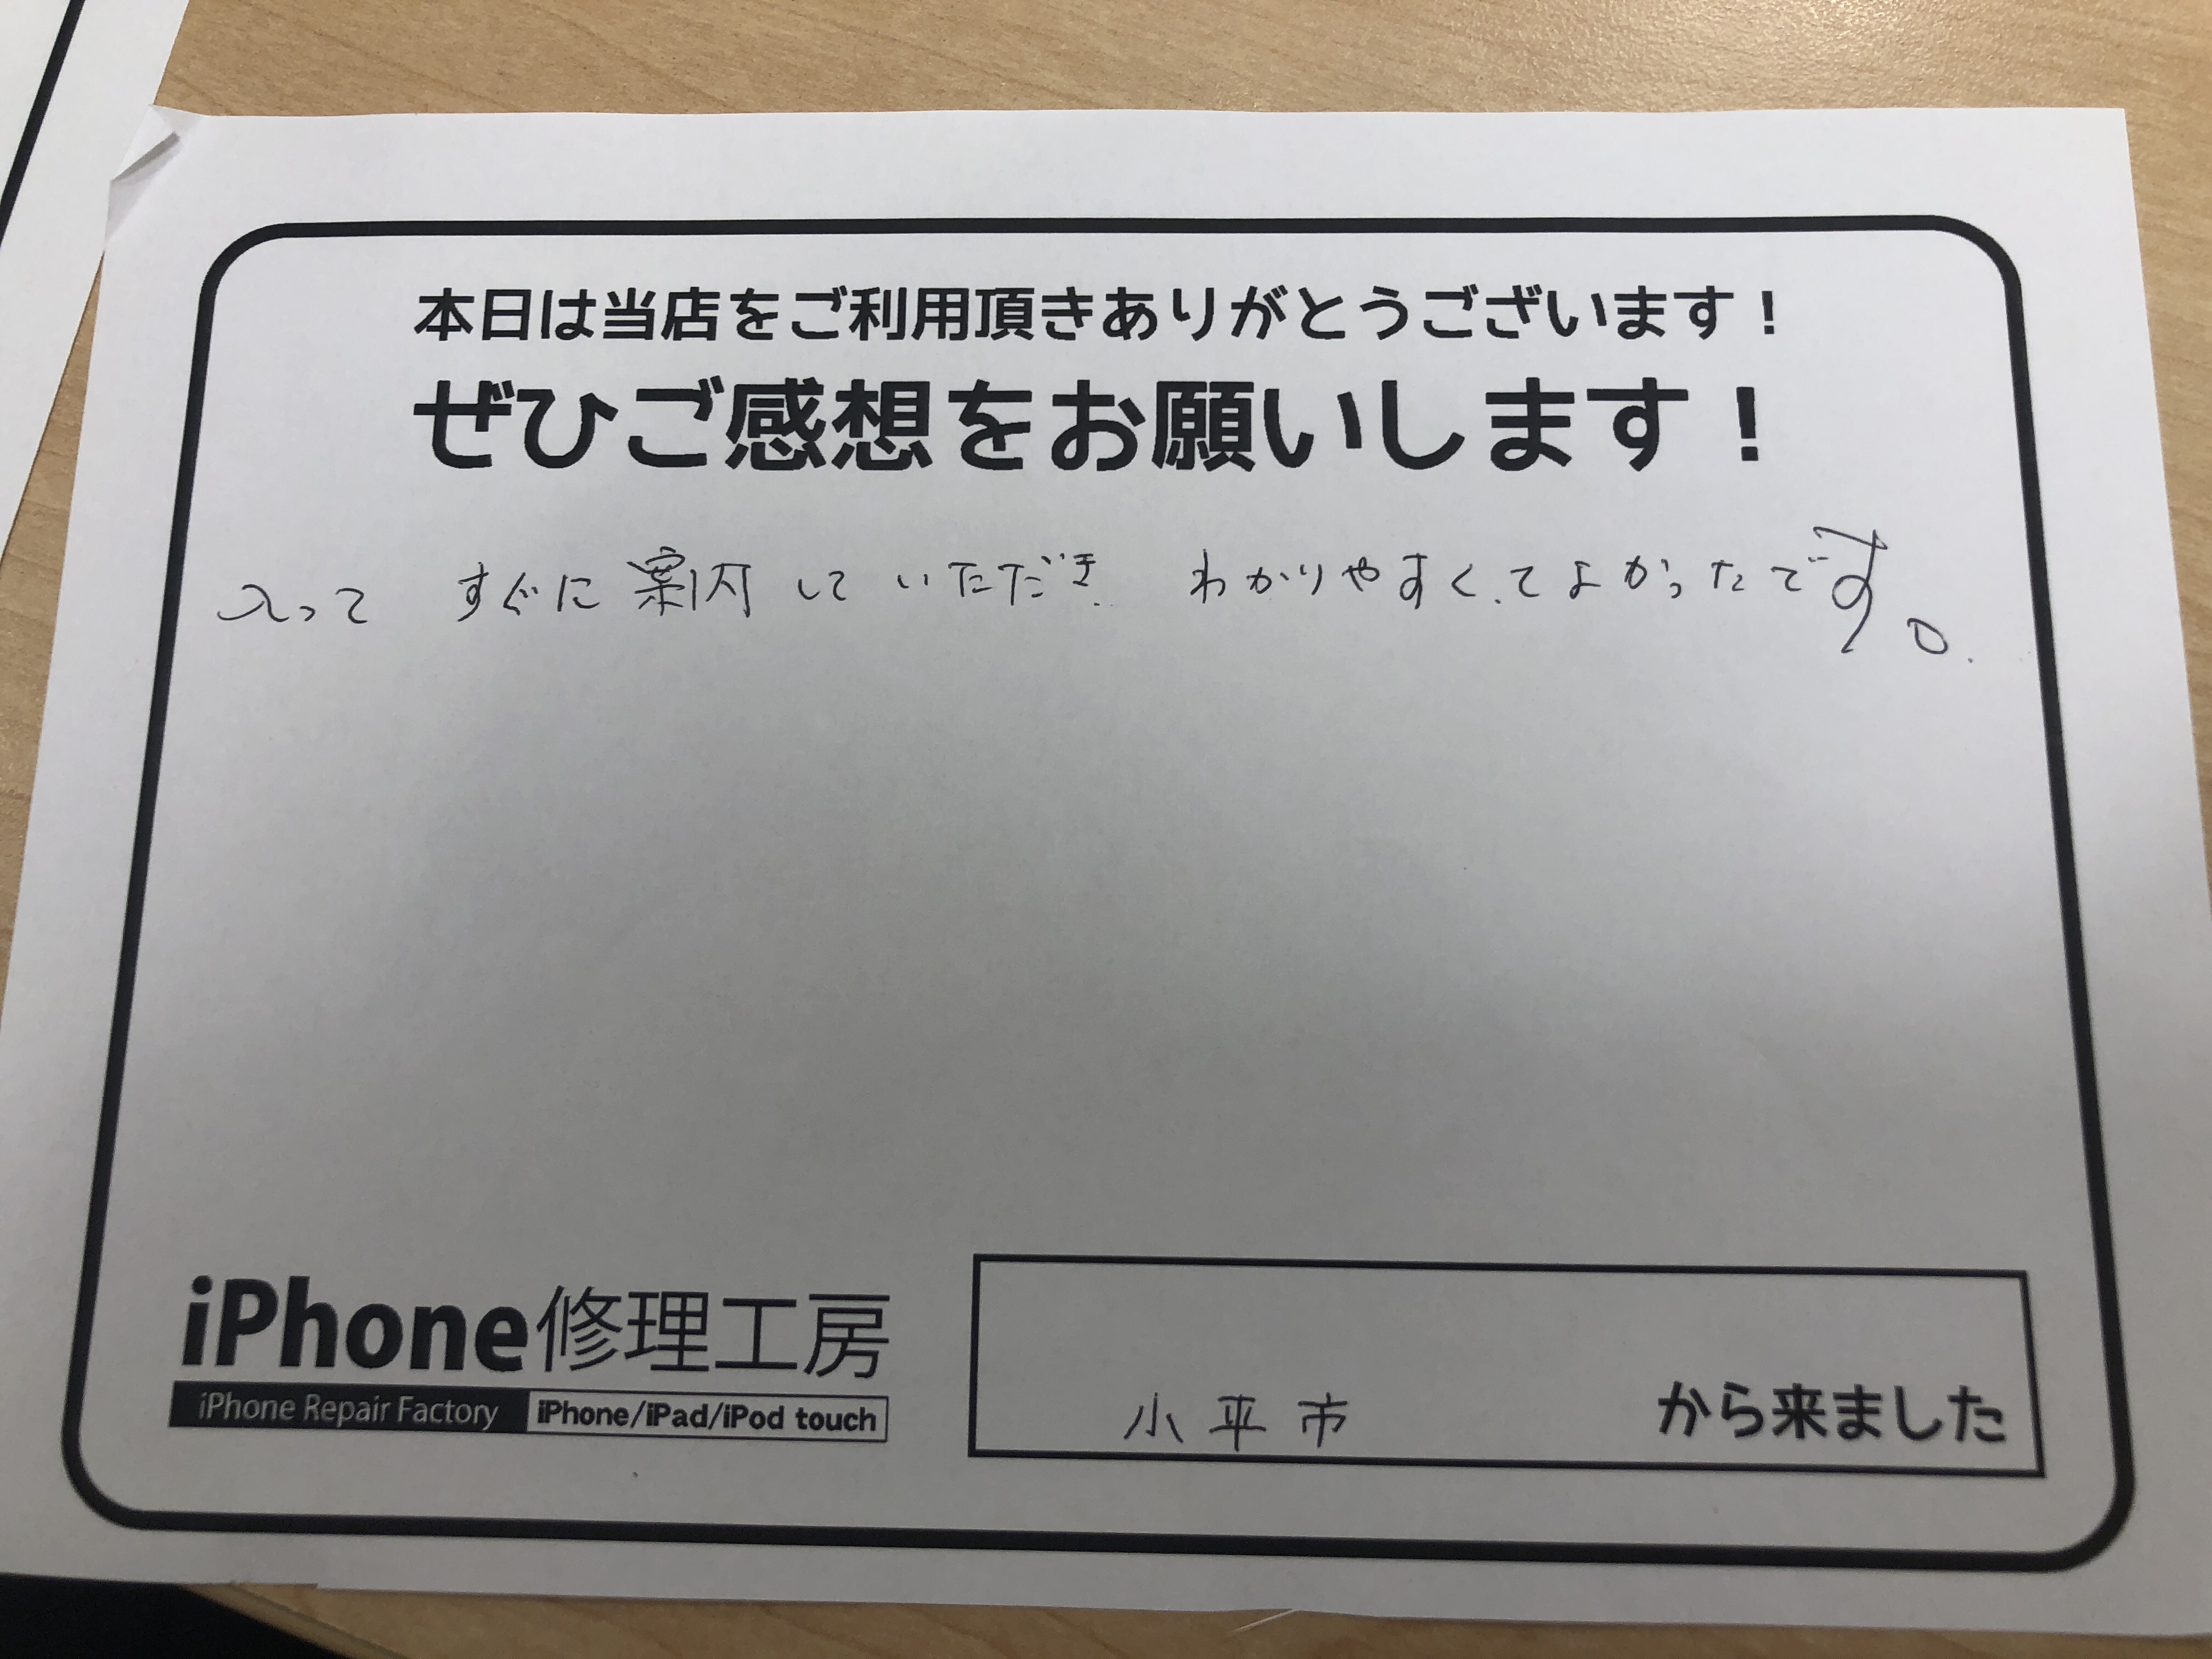 本日は当店をご利用頂きありがとうございます！
ぜひご感想をお願いします！
入って すぐに案内していただき わかりやすくてよかったです。
iPhone修理工房
iPhone Repair Factory iPhone/iPad/iPod touch
小平市 から来ました